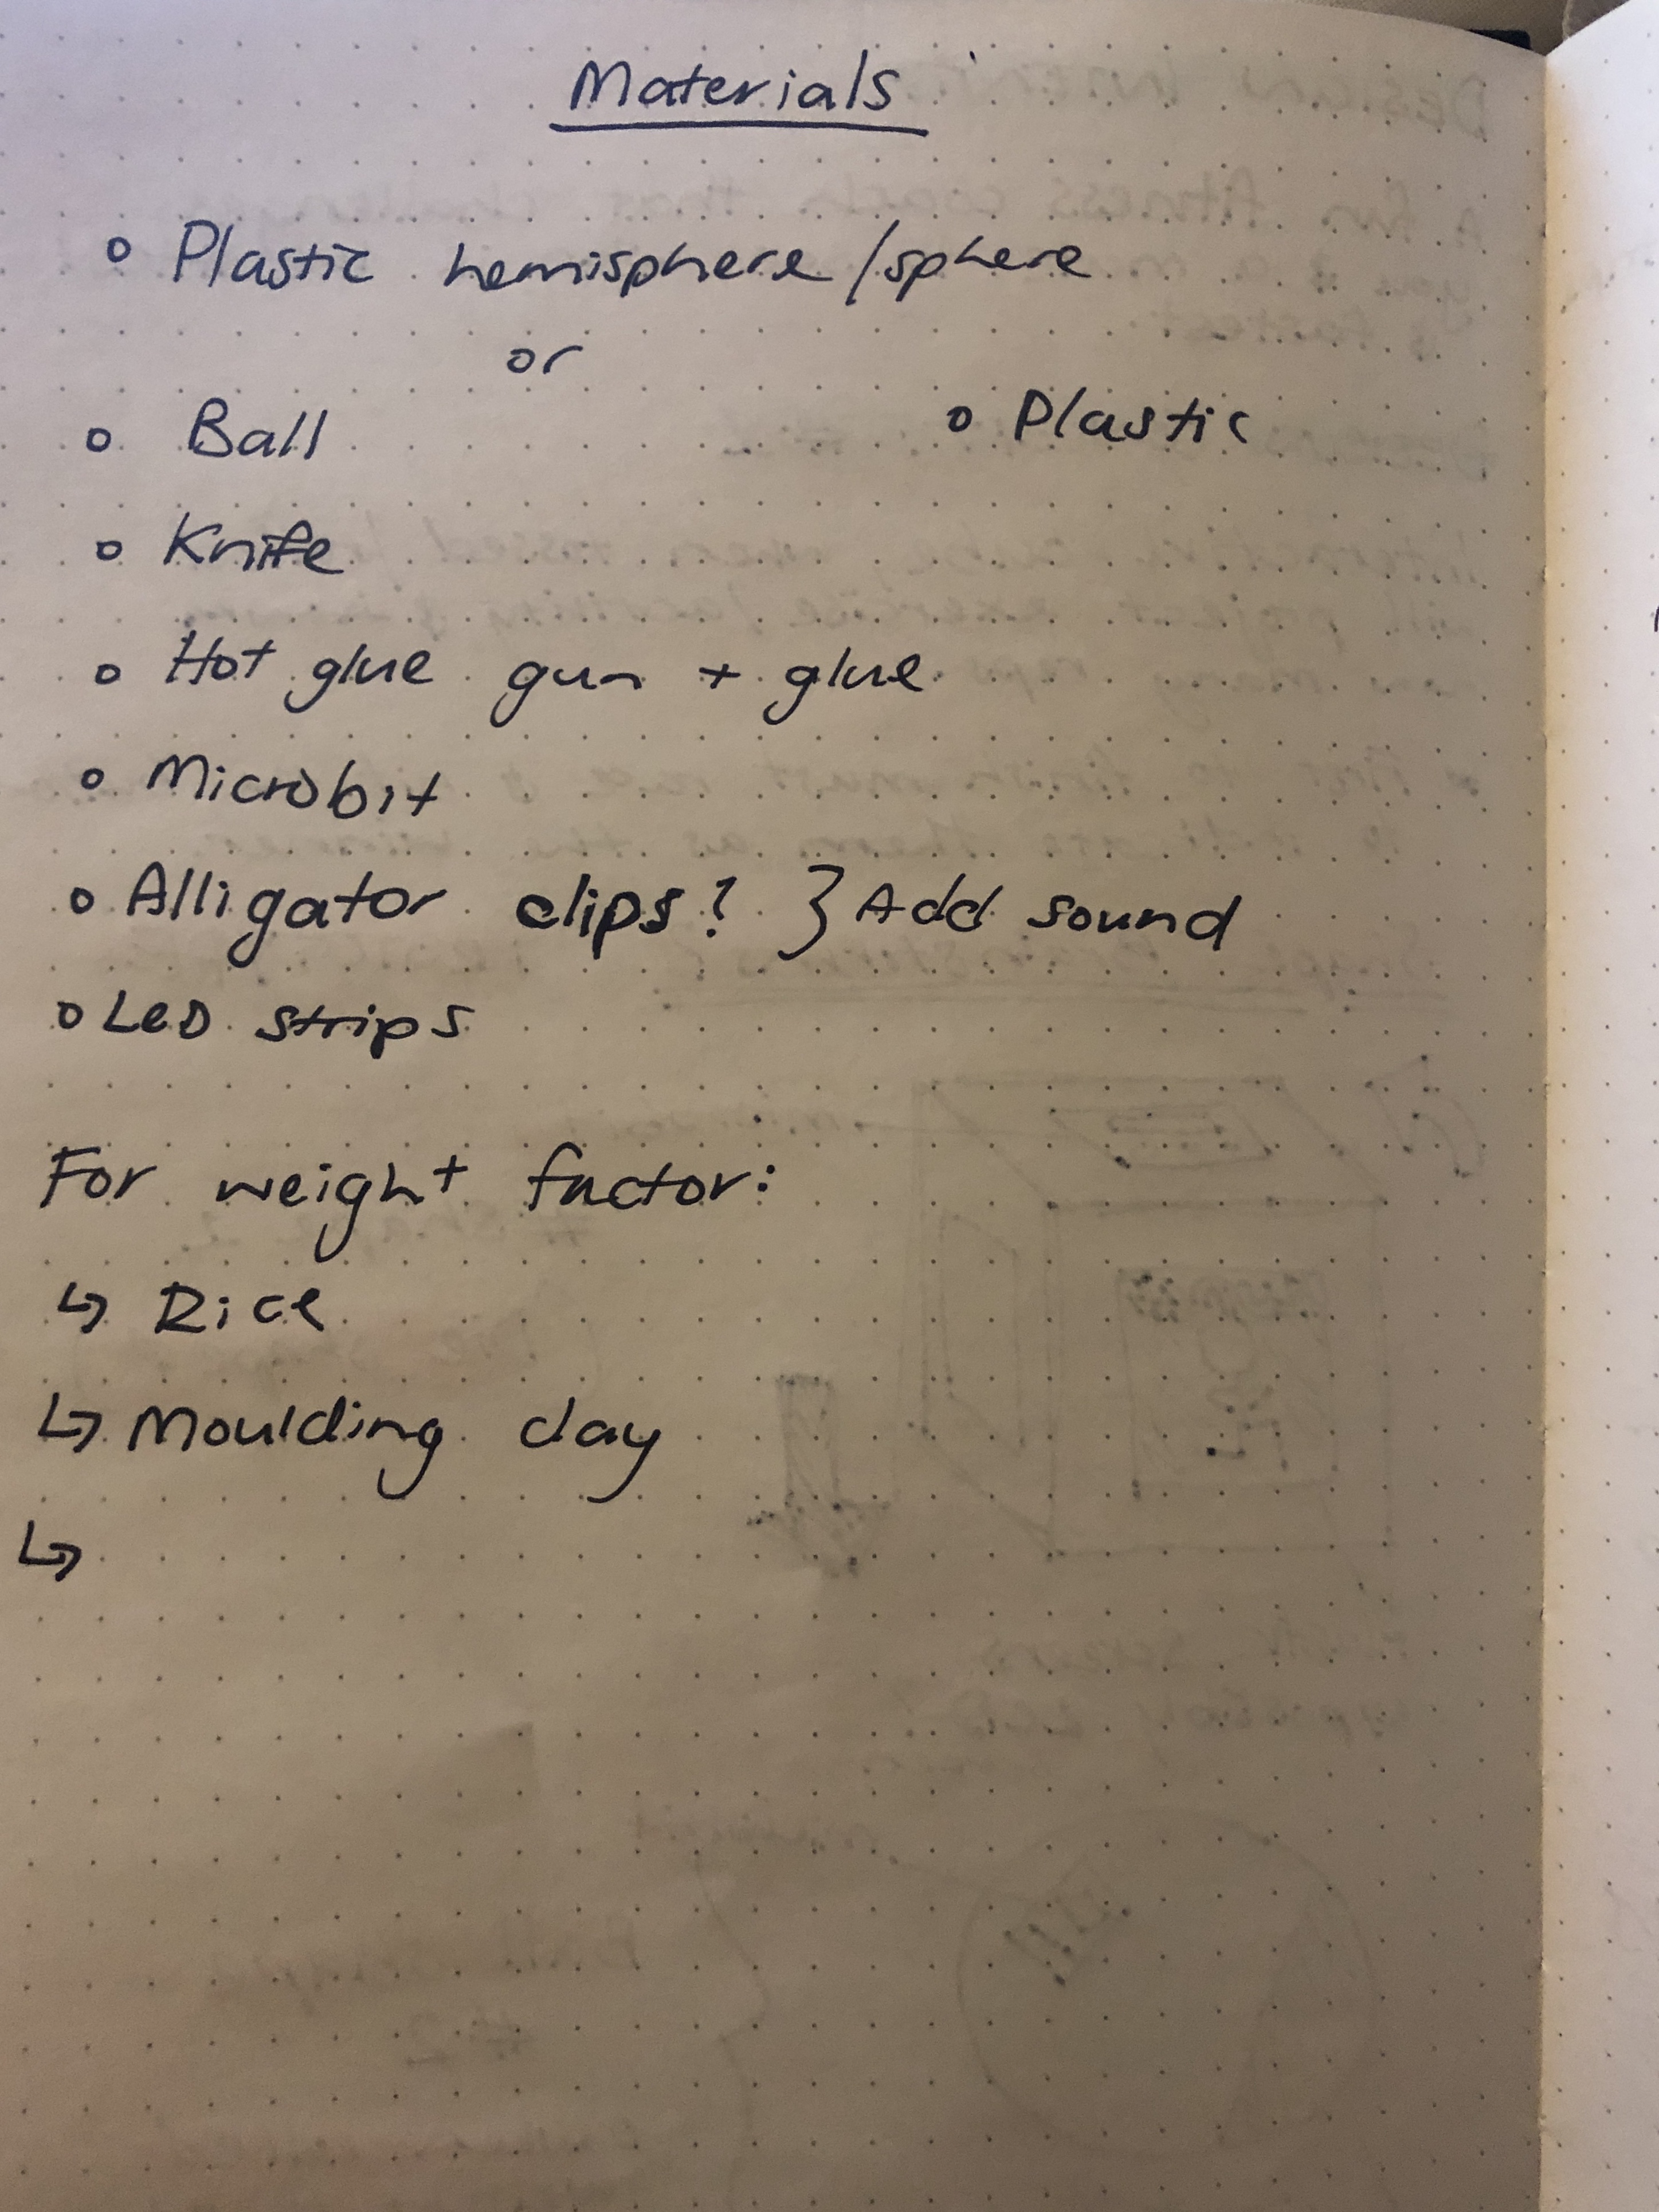 Materials
o Plastic hemisphere/sphere
or
o Ball
o Plastic
o Knife
o Hot glue gun + glue
o Microbit
o Alligator clips? } Add sound
o LED strips
For weight factor:
↳ Rice
↳ Moulding clay
↳